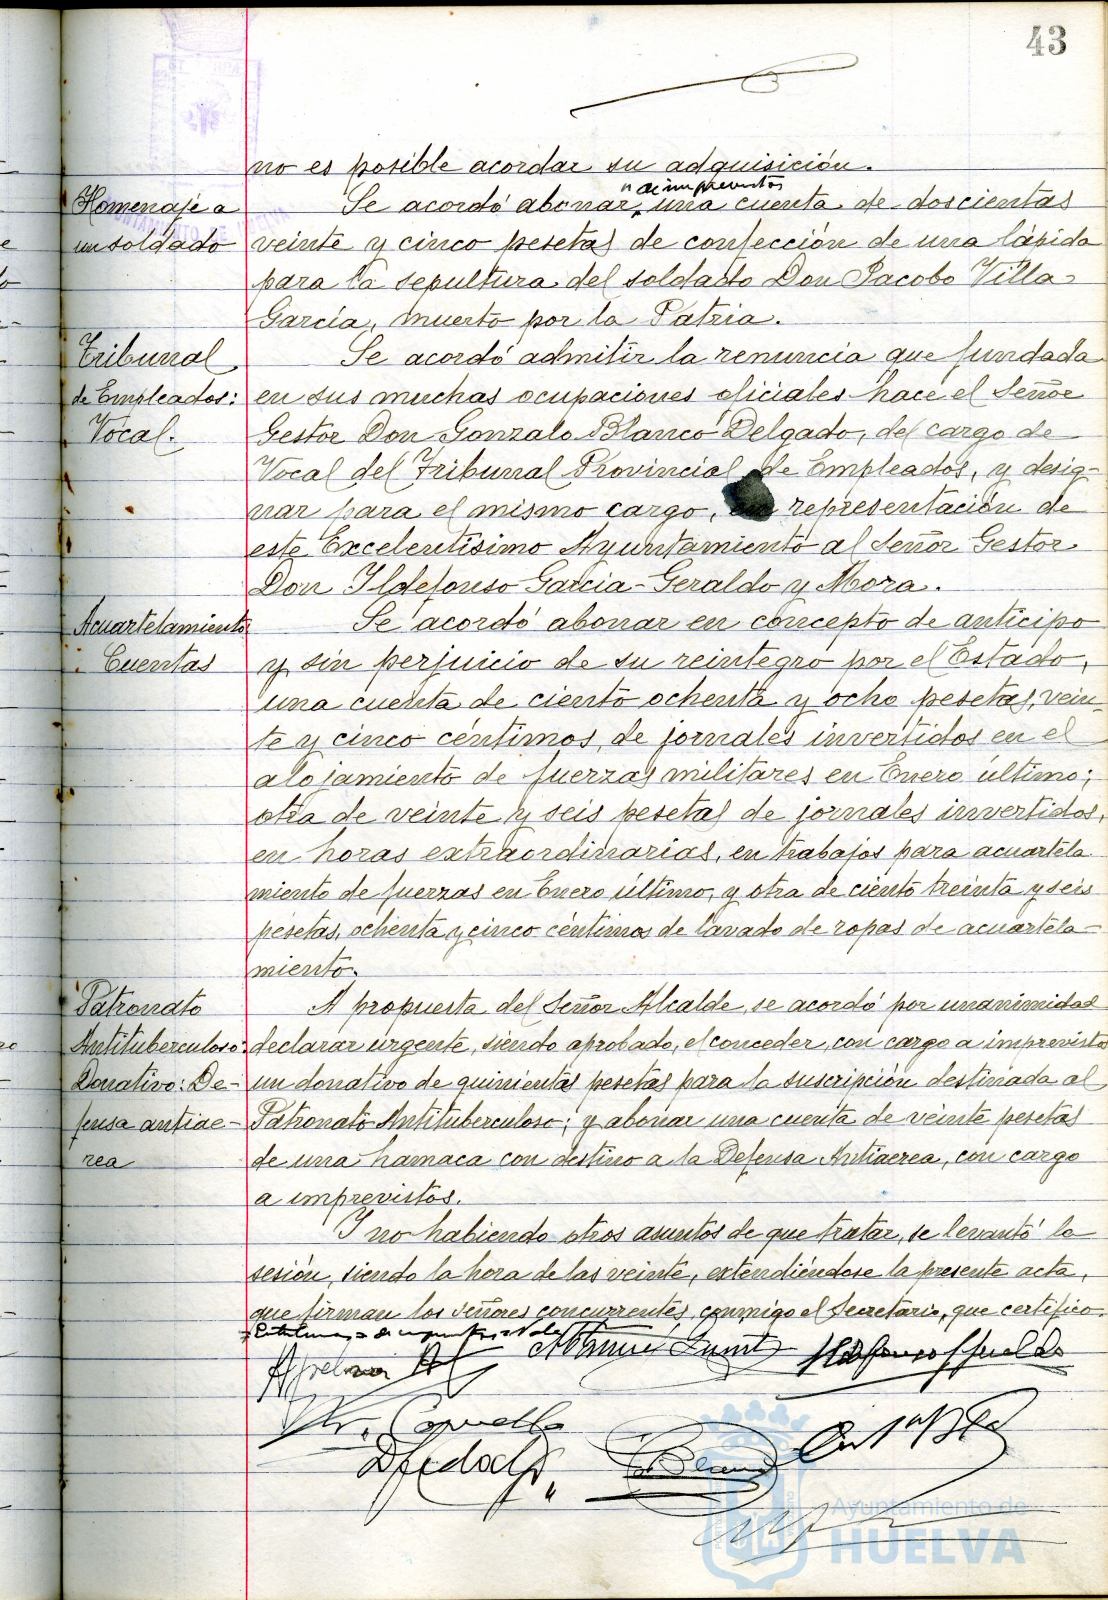 43
no es posible acordar su adquisición.
" de imprevistos
Homenaje a
un soldado
Se acordó abonar, una cuenta de doscientas
veinte y cinco pesetas de confección de una lápida
para la sepultura del soldado Don Jacobo Villa
García, muerto por la Patria.
Tribunal
de Empleados:
Vocal.
Se acordó admitir la renuncia que fundada
en sus muchas ocupaciones oficiales hace el Señor
Gestor Don Gonzalo Blanco Delgado, del cargo de
Vocal del Tribunal Provincial de Empleados, y desig-
nar para el mismo cargo, en representación de
este Excelentísimo Ayuntamiento al Señor Gestor
Don Ildefonso García-Geraldo y Mora.
Acuartelamiento
Cuentas
Se acordó abonar en concepto de anticipo
y sin perjuicio de su reintegro por el Estado,
una cuenta de ciento ochenta y ocho pesetas, vein-
te y cinco céntimos, de jornales invertidos en el
alojamiento de fuerzas militares en Enero último;
otra de veinte y seis pesetas de jornales invertidos,
en horas extraordinarias, en trabajos para acuartela
miento de fuerzas en Enero último, y otra de ciento treinta y seis
pesetas, ochenta y cinco céntimos de lavado de ropas de acuartela-
miento.
Patronato
Antituberculoso:
Donativo: De-
fensa antiae-
rea
A propuesta del Señor Alcalde, se acordó por unanimidad
declarar urgente, siendo aprobado, el conceder, con cargo a imprevistos
un donativo de quinientas pesetas para la suscripción destinada al
Patronato Antituberculoso; y abonar una cuenta de veinte pesetas
de una hamaca con destino a la Defensa Antiaerea, con cargo
a imprevistos.
Y no habiendo otros asuntos de que tratar, se levantó la
sesión, siendo la hora de las veinte, extendiéndose la presente acta,
que firman los señores concurrentes, conmigo el Secretario, que certifico.
Ayuntamiento de
HUELVA